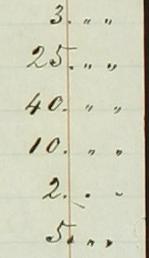 3. „ „
25. „ „
40. „ „
10. „ „
2. „ „
5. „ „